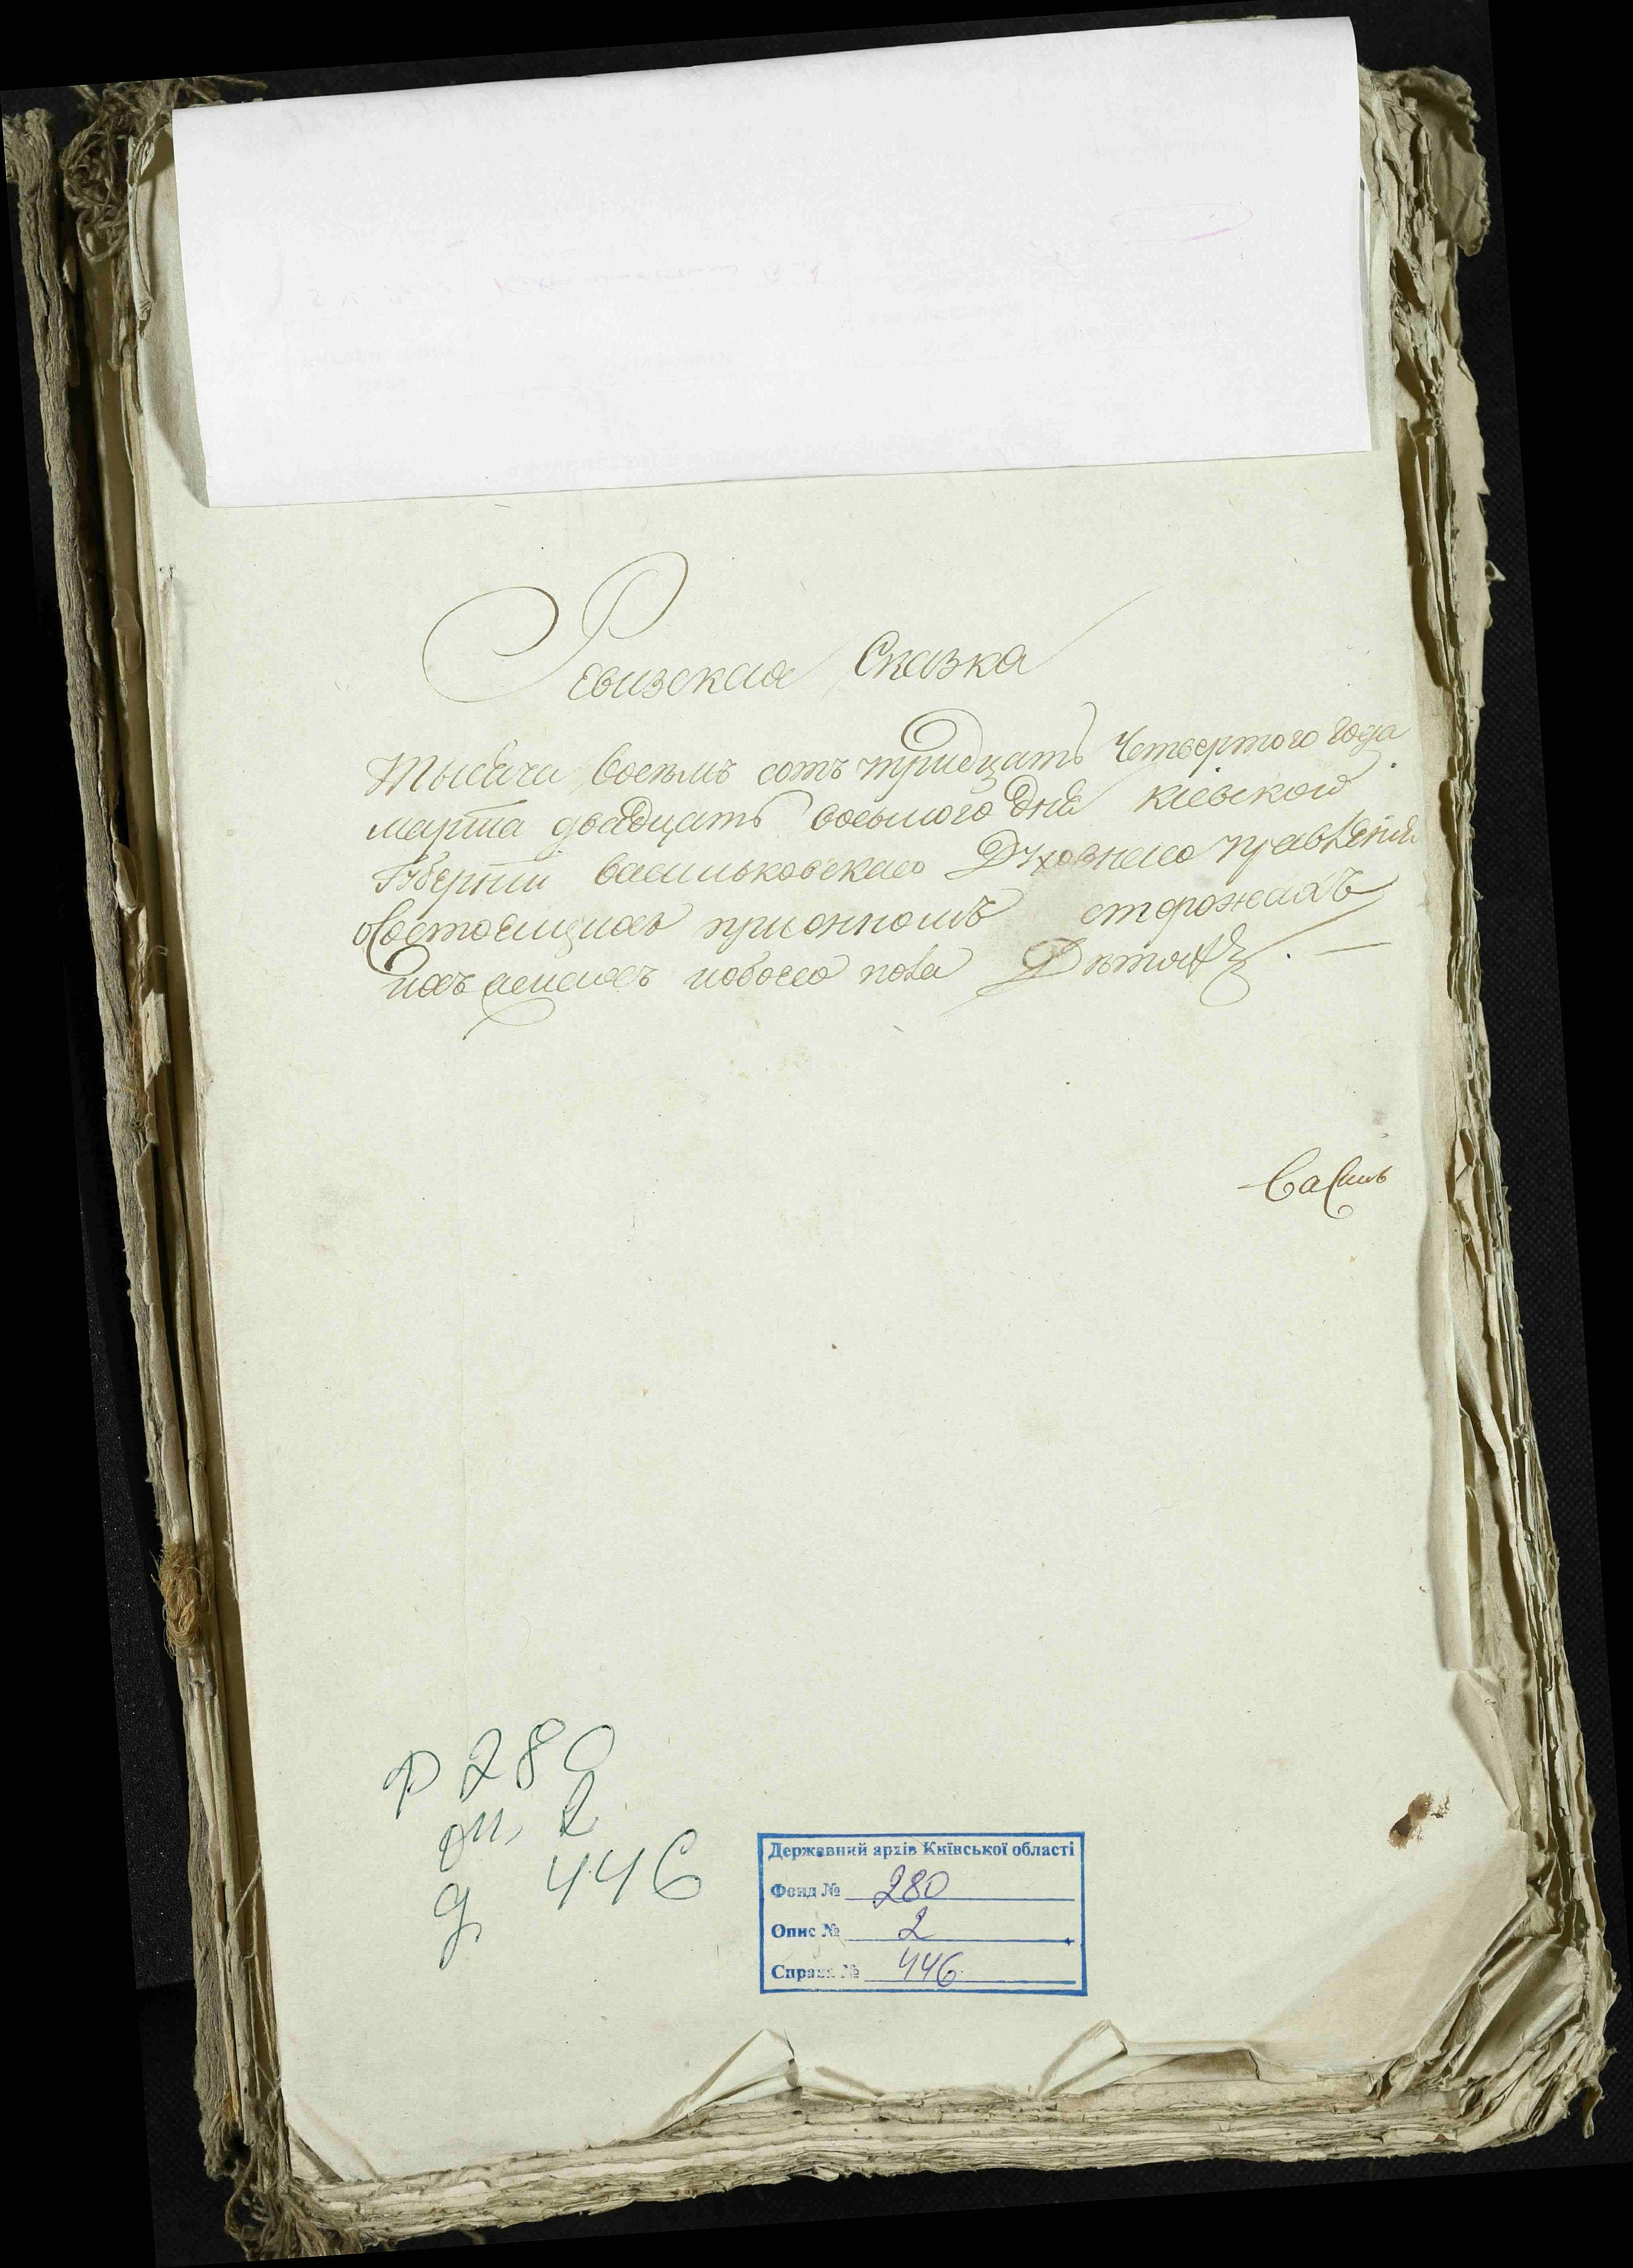 Ревизская Сказка
Тысяча восемь сотъ тридцать Четвертого года
марта двадцать восьмого дня кіевской
Губерніи васильковскаго Духовнаго правленія
о состоящихъ при ономъ сторожахъ
ихъ женахъ и обоего пола Дѣтяхъ. —
Василь
Ф 280
оп. 2
д 446
Державний архів Київської області
Фонд № 280
Опис № 2
Справа № 446